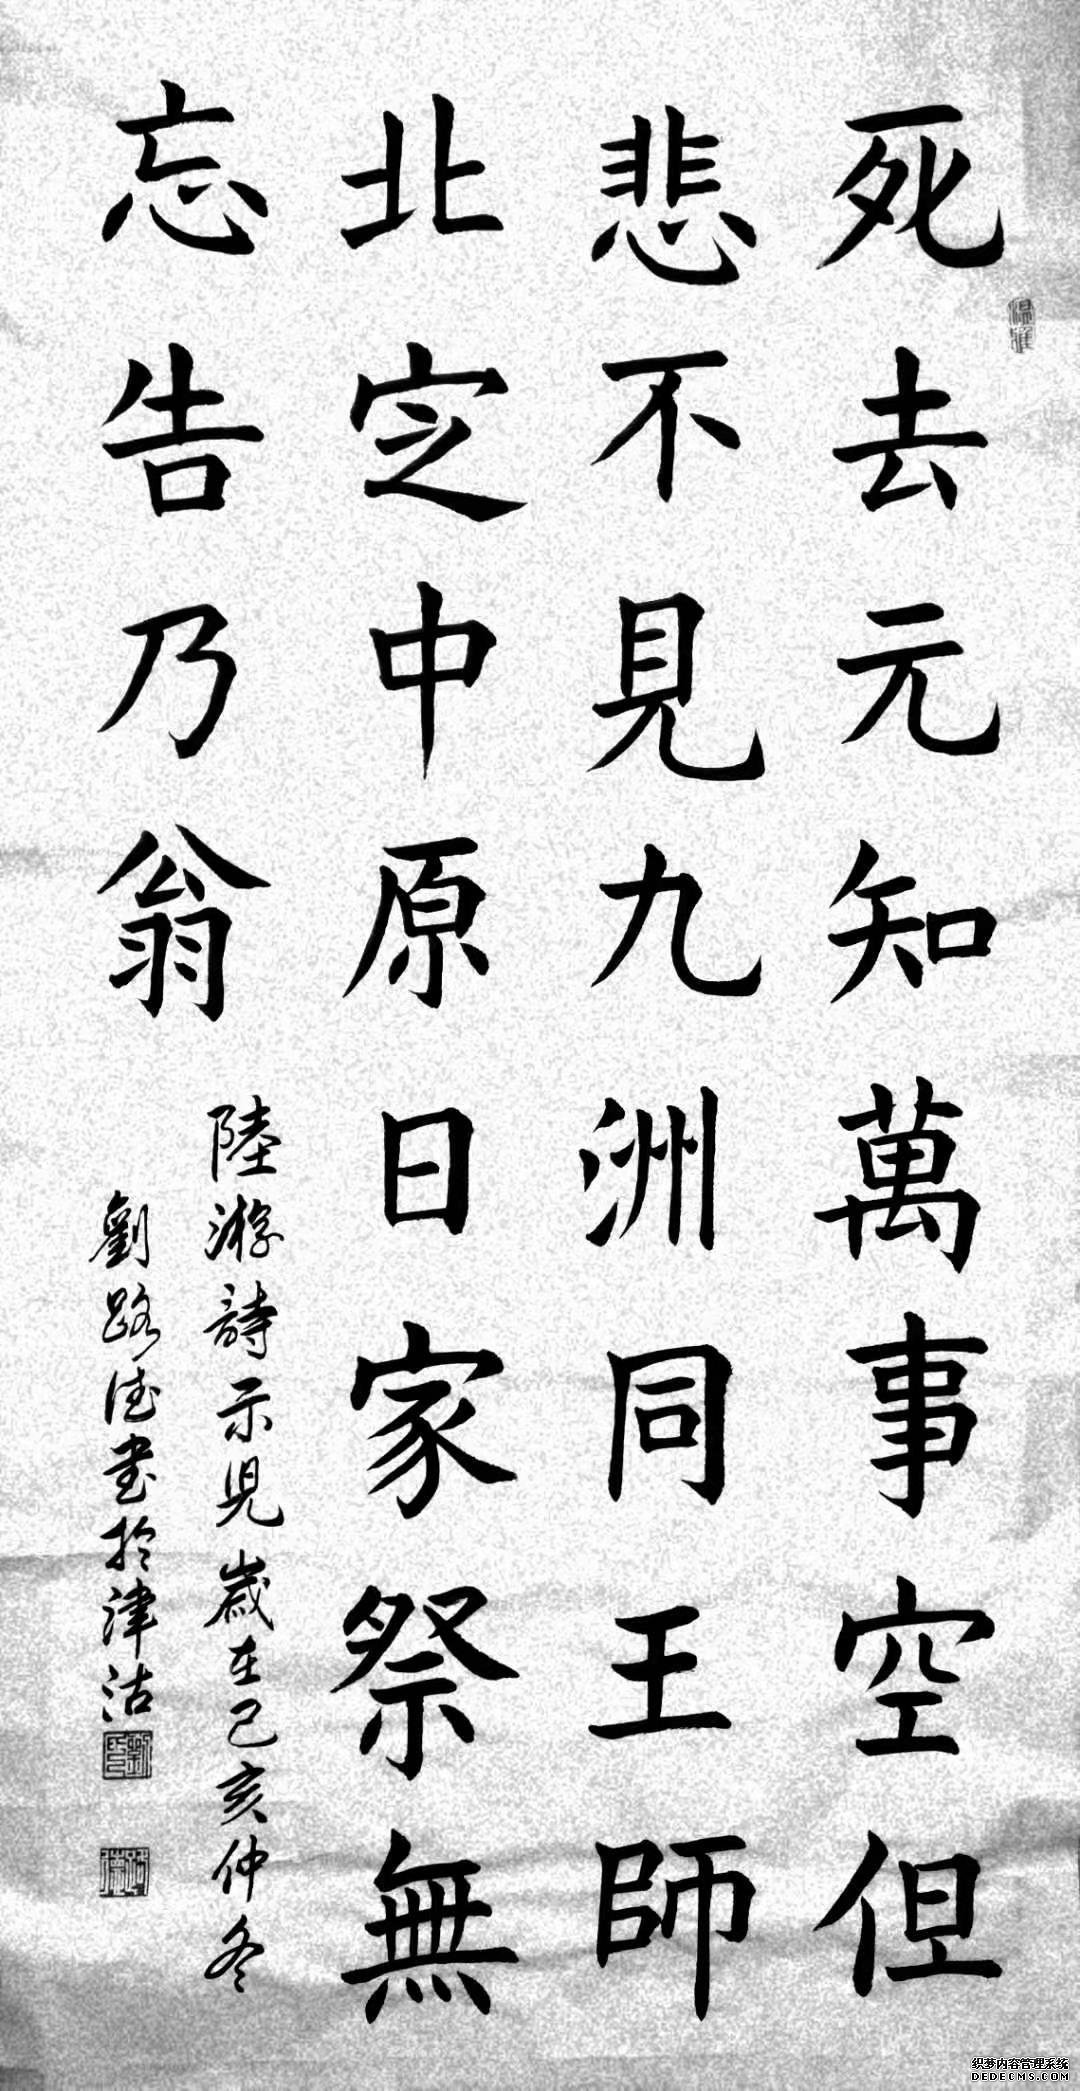 死去元知萬事空但
悲不見九洲同王師
北定中原日家祭無
忘告乃翁
陸游詩示児歲在己亥仲冬
劉路德書於津沽
織梦内容管理系统
DEDECMS.COM